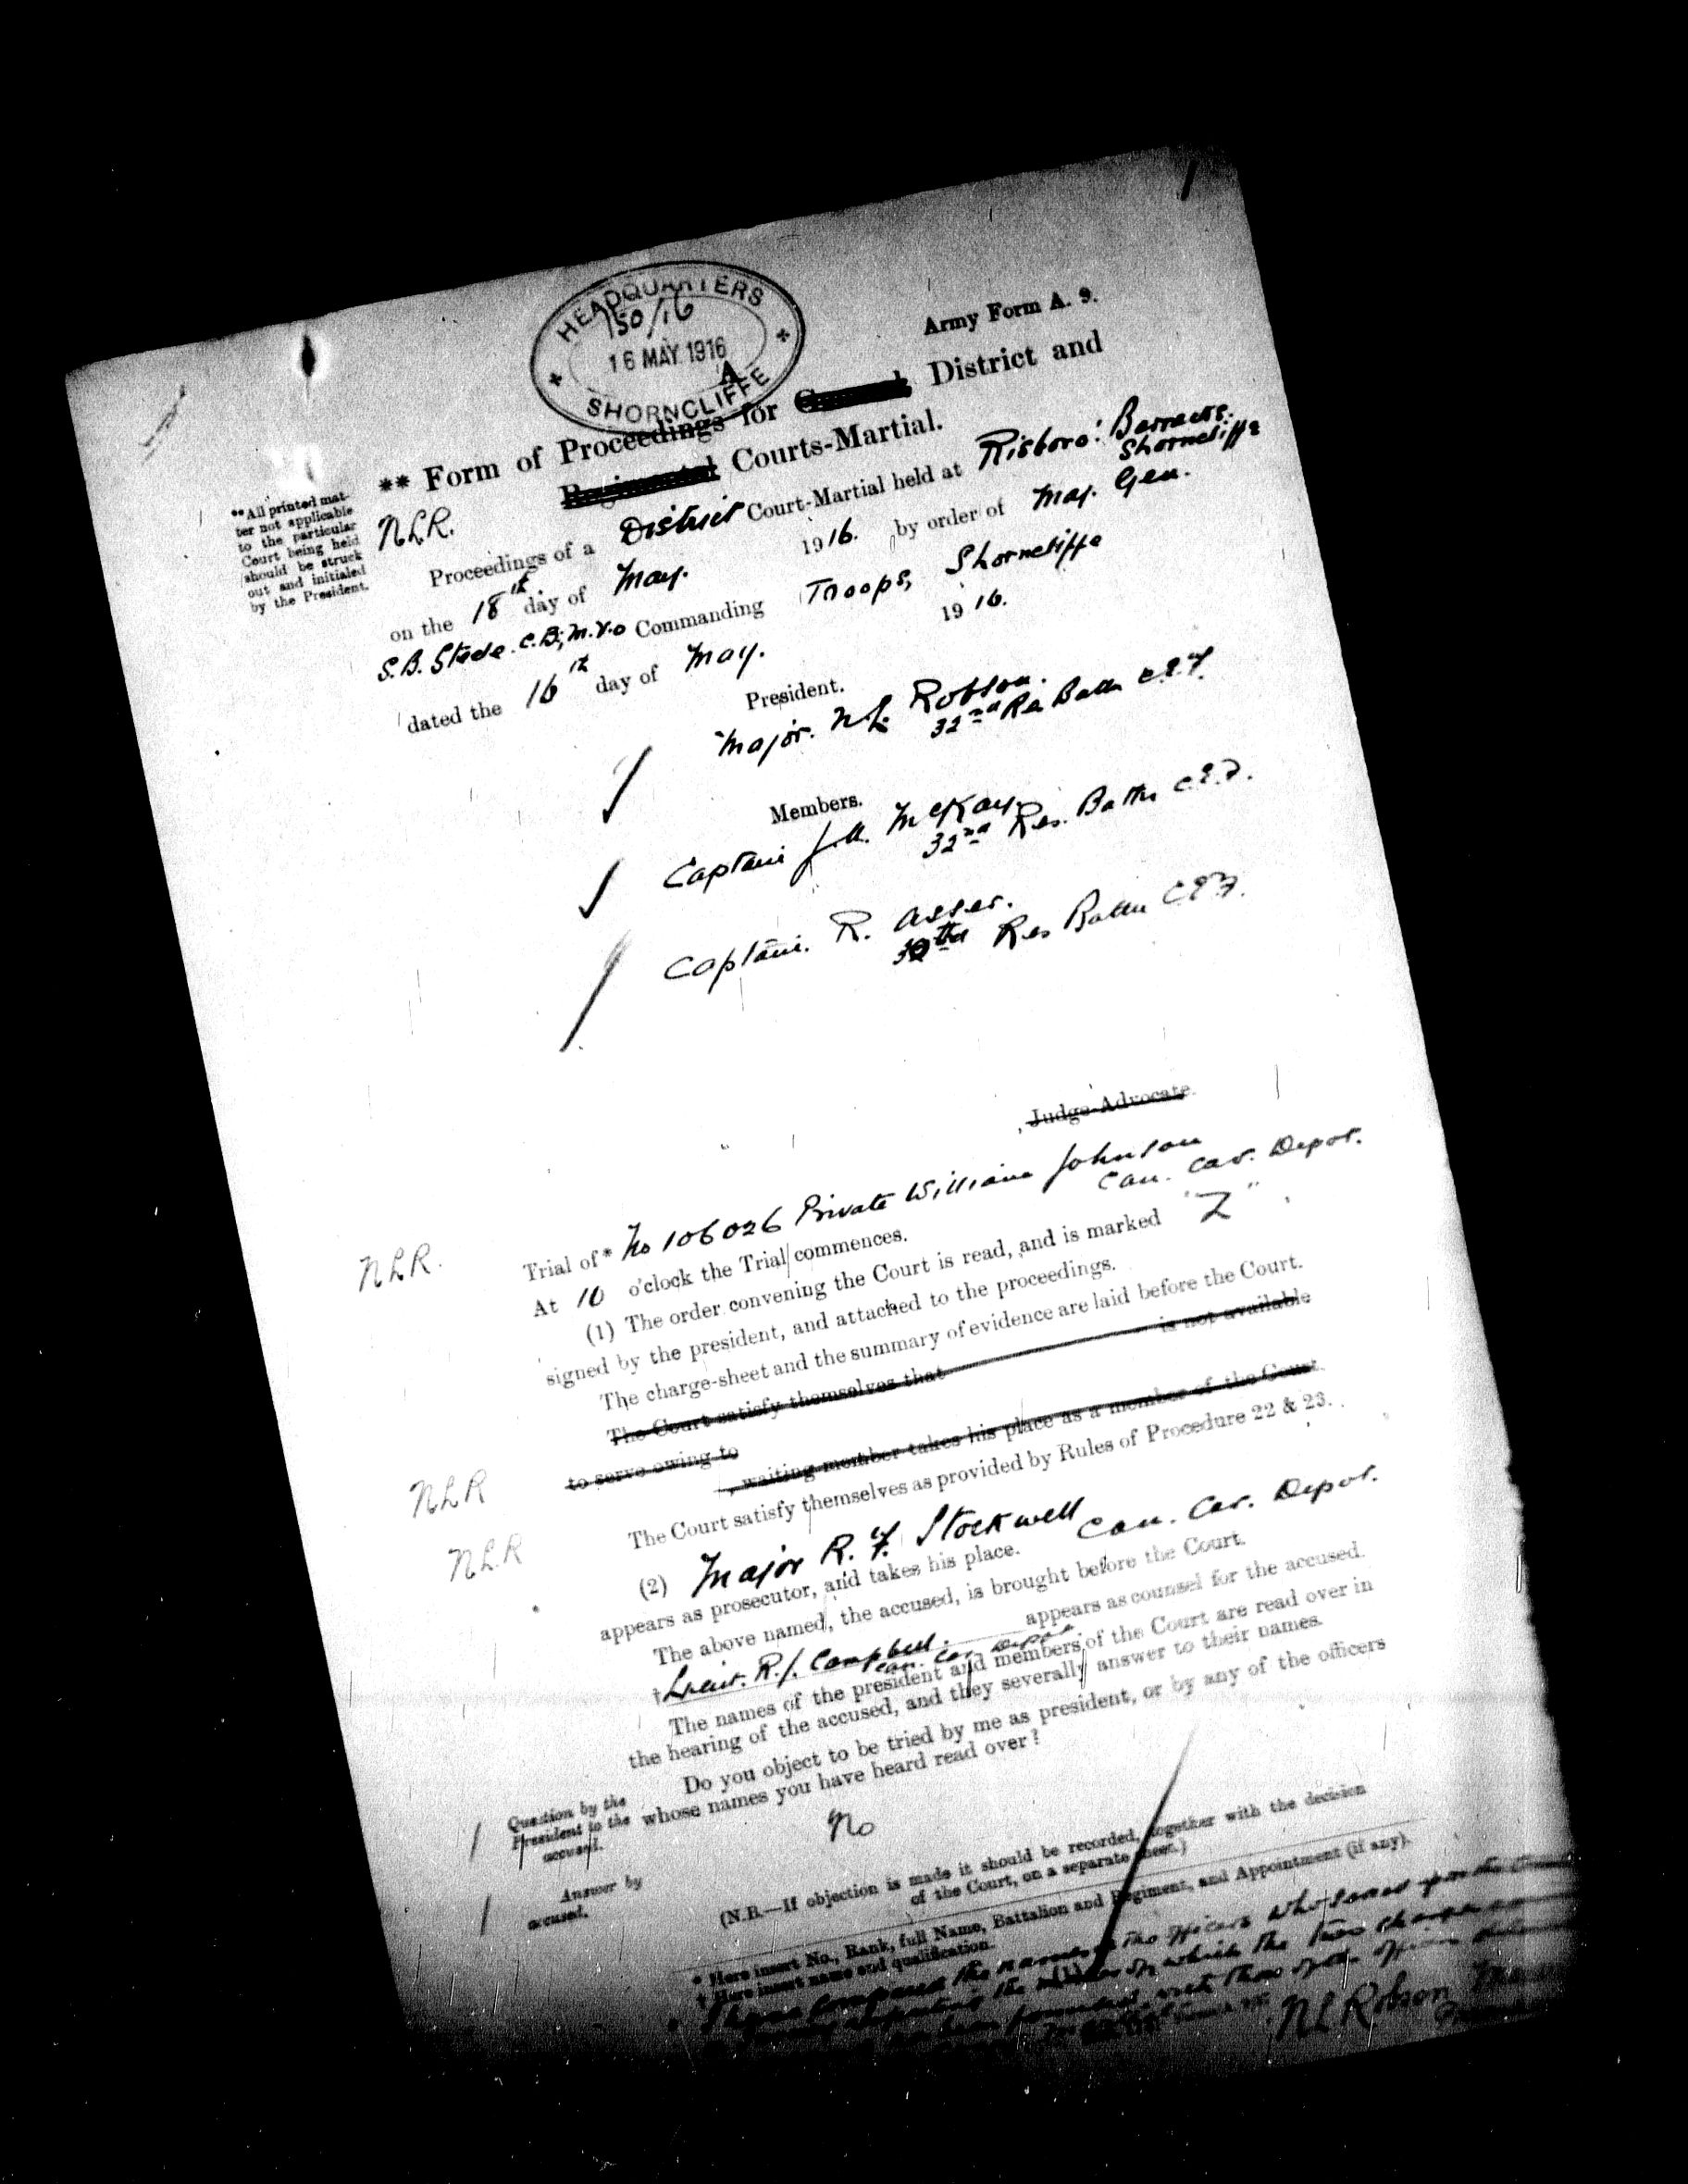 HEADQUARTERS
750/16
16 MAY 1916
A
SHORNCLIFFE
Army Form A. 9.
** Form of Proceedings for General, District and
Regimental Courts-Martial.
**All printed mat-
ter not applicable
to the particular
Court being held
should be struck
out and initialed
by the President.
N.L.R.
Proceedings of a District Court-Martial held at Risboro' Barracks. Shorncliffe
on the 18th day of May. 1916. by order of Maj. Gen.
S.B. Steele. C.B; M.V.O Commanding Troops, Shorncliffe
dated the 16th day of May. 1916.
President.
Major. N.L. Robson.
32nd Res Battn C.E.F.
Members.
Captain J.A. McKay.
32nd Res. Battn C.E.F.
Captain. R. Asser.
Res Battn C.E.F.
Judge-Advocate.
N.L.R.
Trial of* No 106026 Private William Johnson
Can. Cav. Depot.
At 10 o'clock the Trial commences.
(1) The order convening the Court is read, and is marked "Z",
signed by the president, and attached to the proceedings.
The charge-sheet and the summary of evidence are laid before the Court.
The Court satisfy themselves that is not available
N.L.R
to serve owing to
, waiting member takes his place as a member of the Court.
N.L.R
The Court satisfy themselves as provided by Rules of Procedure 22 & 23.
(2) Major R.F. Stockwell Can. Cav. Depot.
appears as prosecutor, and takes his place.
The above named, the accused, is brought before the Court.
†Lieut. R.J. Campbell. Can. Cav. Depot. appears as counsel for the accused.
The names of the president and members of the Court are read over in
the hearing of the accused, and they severally answer to their names.
Do you object to be tried by me as president, or by any of the officers
whose names you have heard read over?
Question by the
President to the
accused.
No
Answer by
accused.
(N.B.—If objection is made it should be recorded, together with the decision
of the Court, on a separate sheet.)
* Here insert No., Rank, full Name, Battalion and Regiment, and Appointment (if any).
† Here insert name and qualification.
I have compared the names of the officers who
on which the two
N L Robson